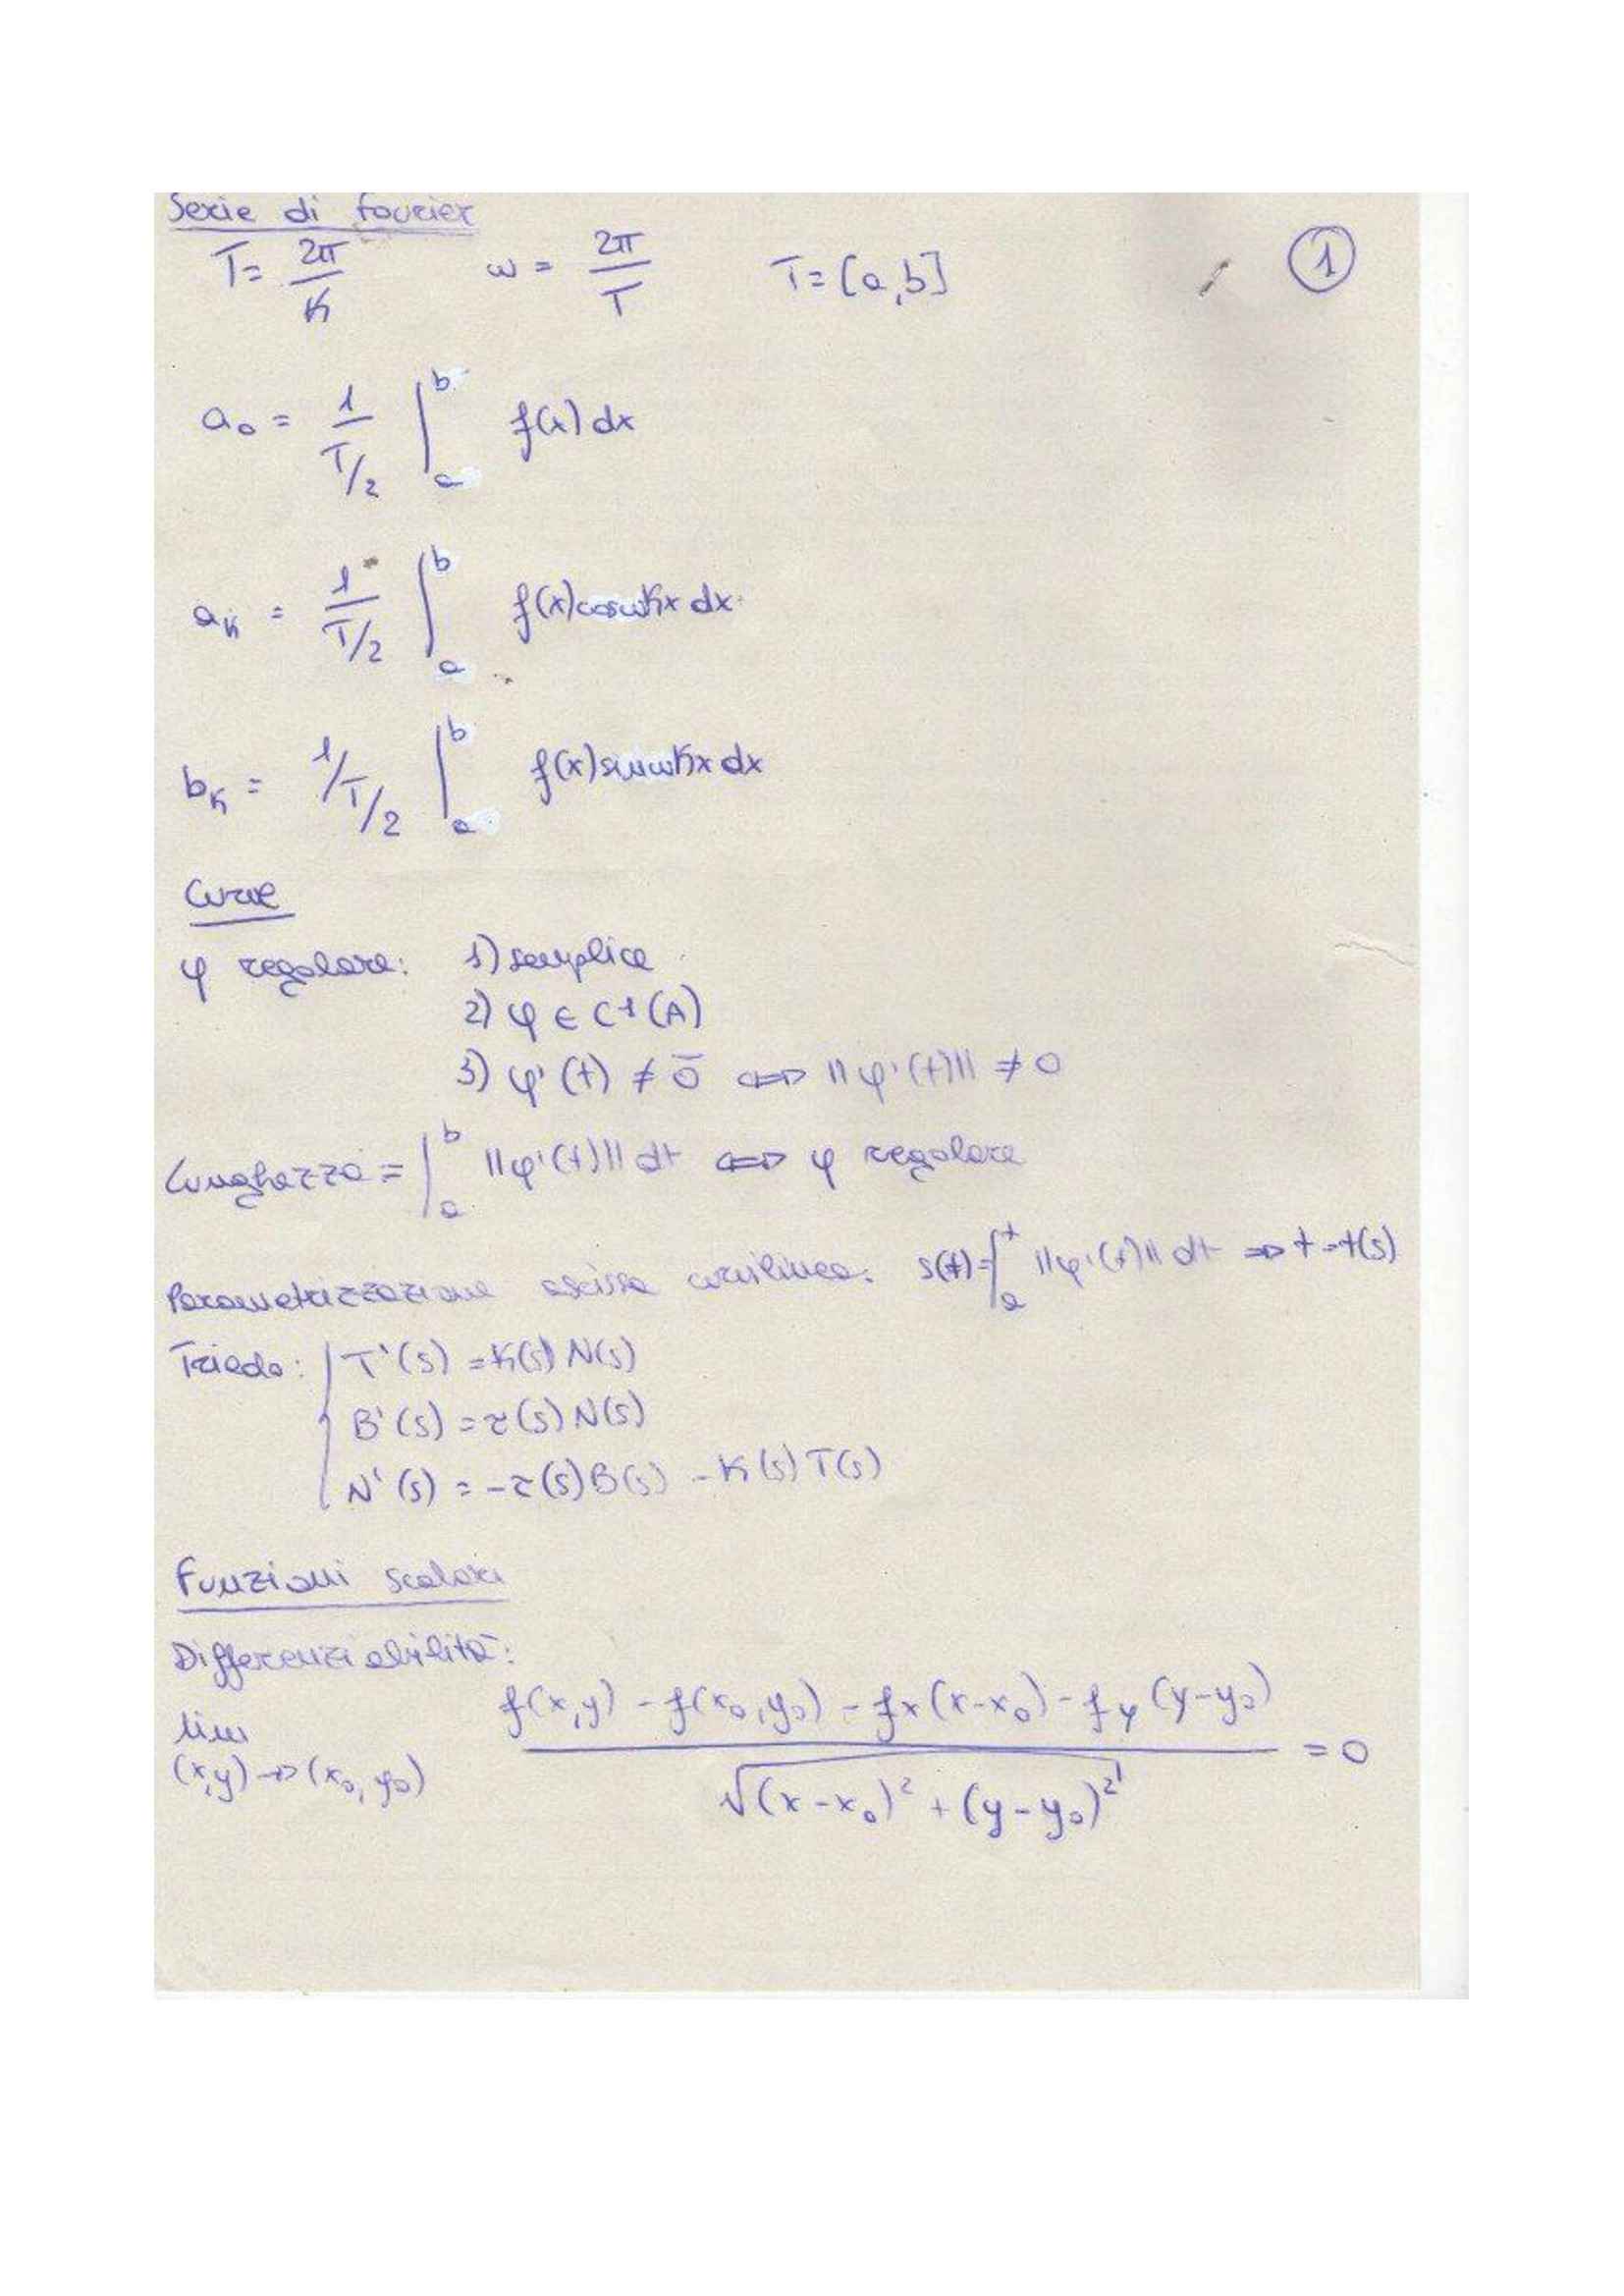 Serie di Fourier
T = 2π/K   ω = 2π/T   T = [a,b]   1
a₀ = 1/(T/2) ∫ₐᵇ f(x) dx
aₖ = 1/(T/2) ∫ₐᵇ f(x) cos ωKx dx
bₖ = 1/(T/2) ∫ₐᵇ f(x) sin ωKx dx
Curve
φ regolare: 1) semplice
2) φ ∈ C¹(A)
3) φ'(t) ≠ 0̄ ⇔ ||φ'(t)|| ≠ 0
Lunghezza = ∫ₐᵇ ||φ'(t)|| dt ⇔ φ regolare
Parametrizzazione ascissa curvilinea: s(t) = ∫ₐᵗ ||φ'(t)|| dt ⇒ t = t(s)
Triedo: { T'(s) = K(s) N(s)
B'(s) = τ(s) N(s)
N'(s) = -τ(s) B(s) - K(s) T(s)
Funzioni scalari
Differenziabilità:
lim (x,y)→(x₀,y₀) [f(x,y) - f(x₀,y₀) - fx(x-x₀) - fy(y-y₀)] / √((x-x₀)² + (y-y₀)²) = 0